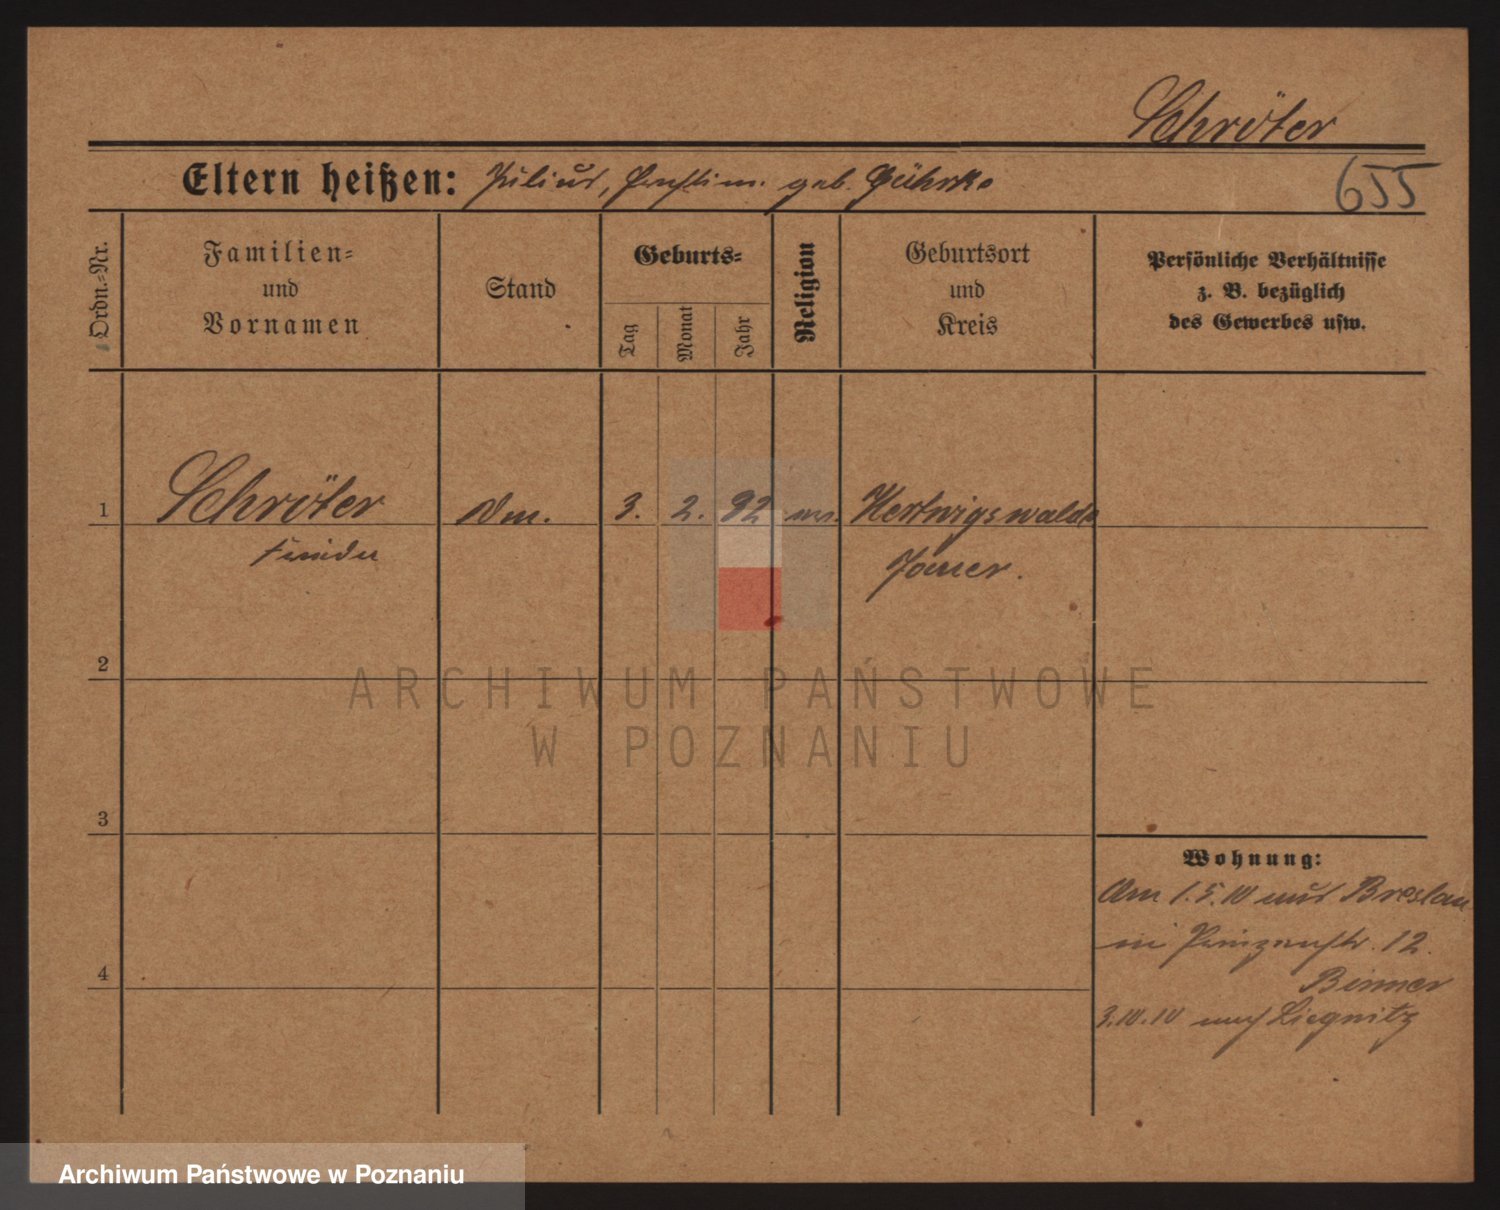 Schröter
Eltern heißen: Julius, geb.
655
Ordn.-Nr.
Familien-
und
Vornamen
Stand
Geburts-
Tag
Monat
Jahr
Religion
Geburtsort
und
Kreis
Persönliche Verhältnisse
z. B. bezüglich
des Gewerbes usw.
1
Schröter
3. 2. 92
Hertwigswalde
Jauer.
2
ARCHIWUM PAŃSTWOWE
W POZNANIU
3
Wohnung:
Am 1.5.10 aus Breslau
12.
4
3.10.10 nach Liegnitz
Archiwum Państwowe w Poznaniu